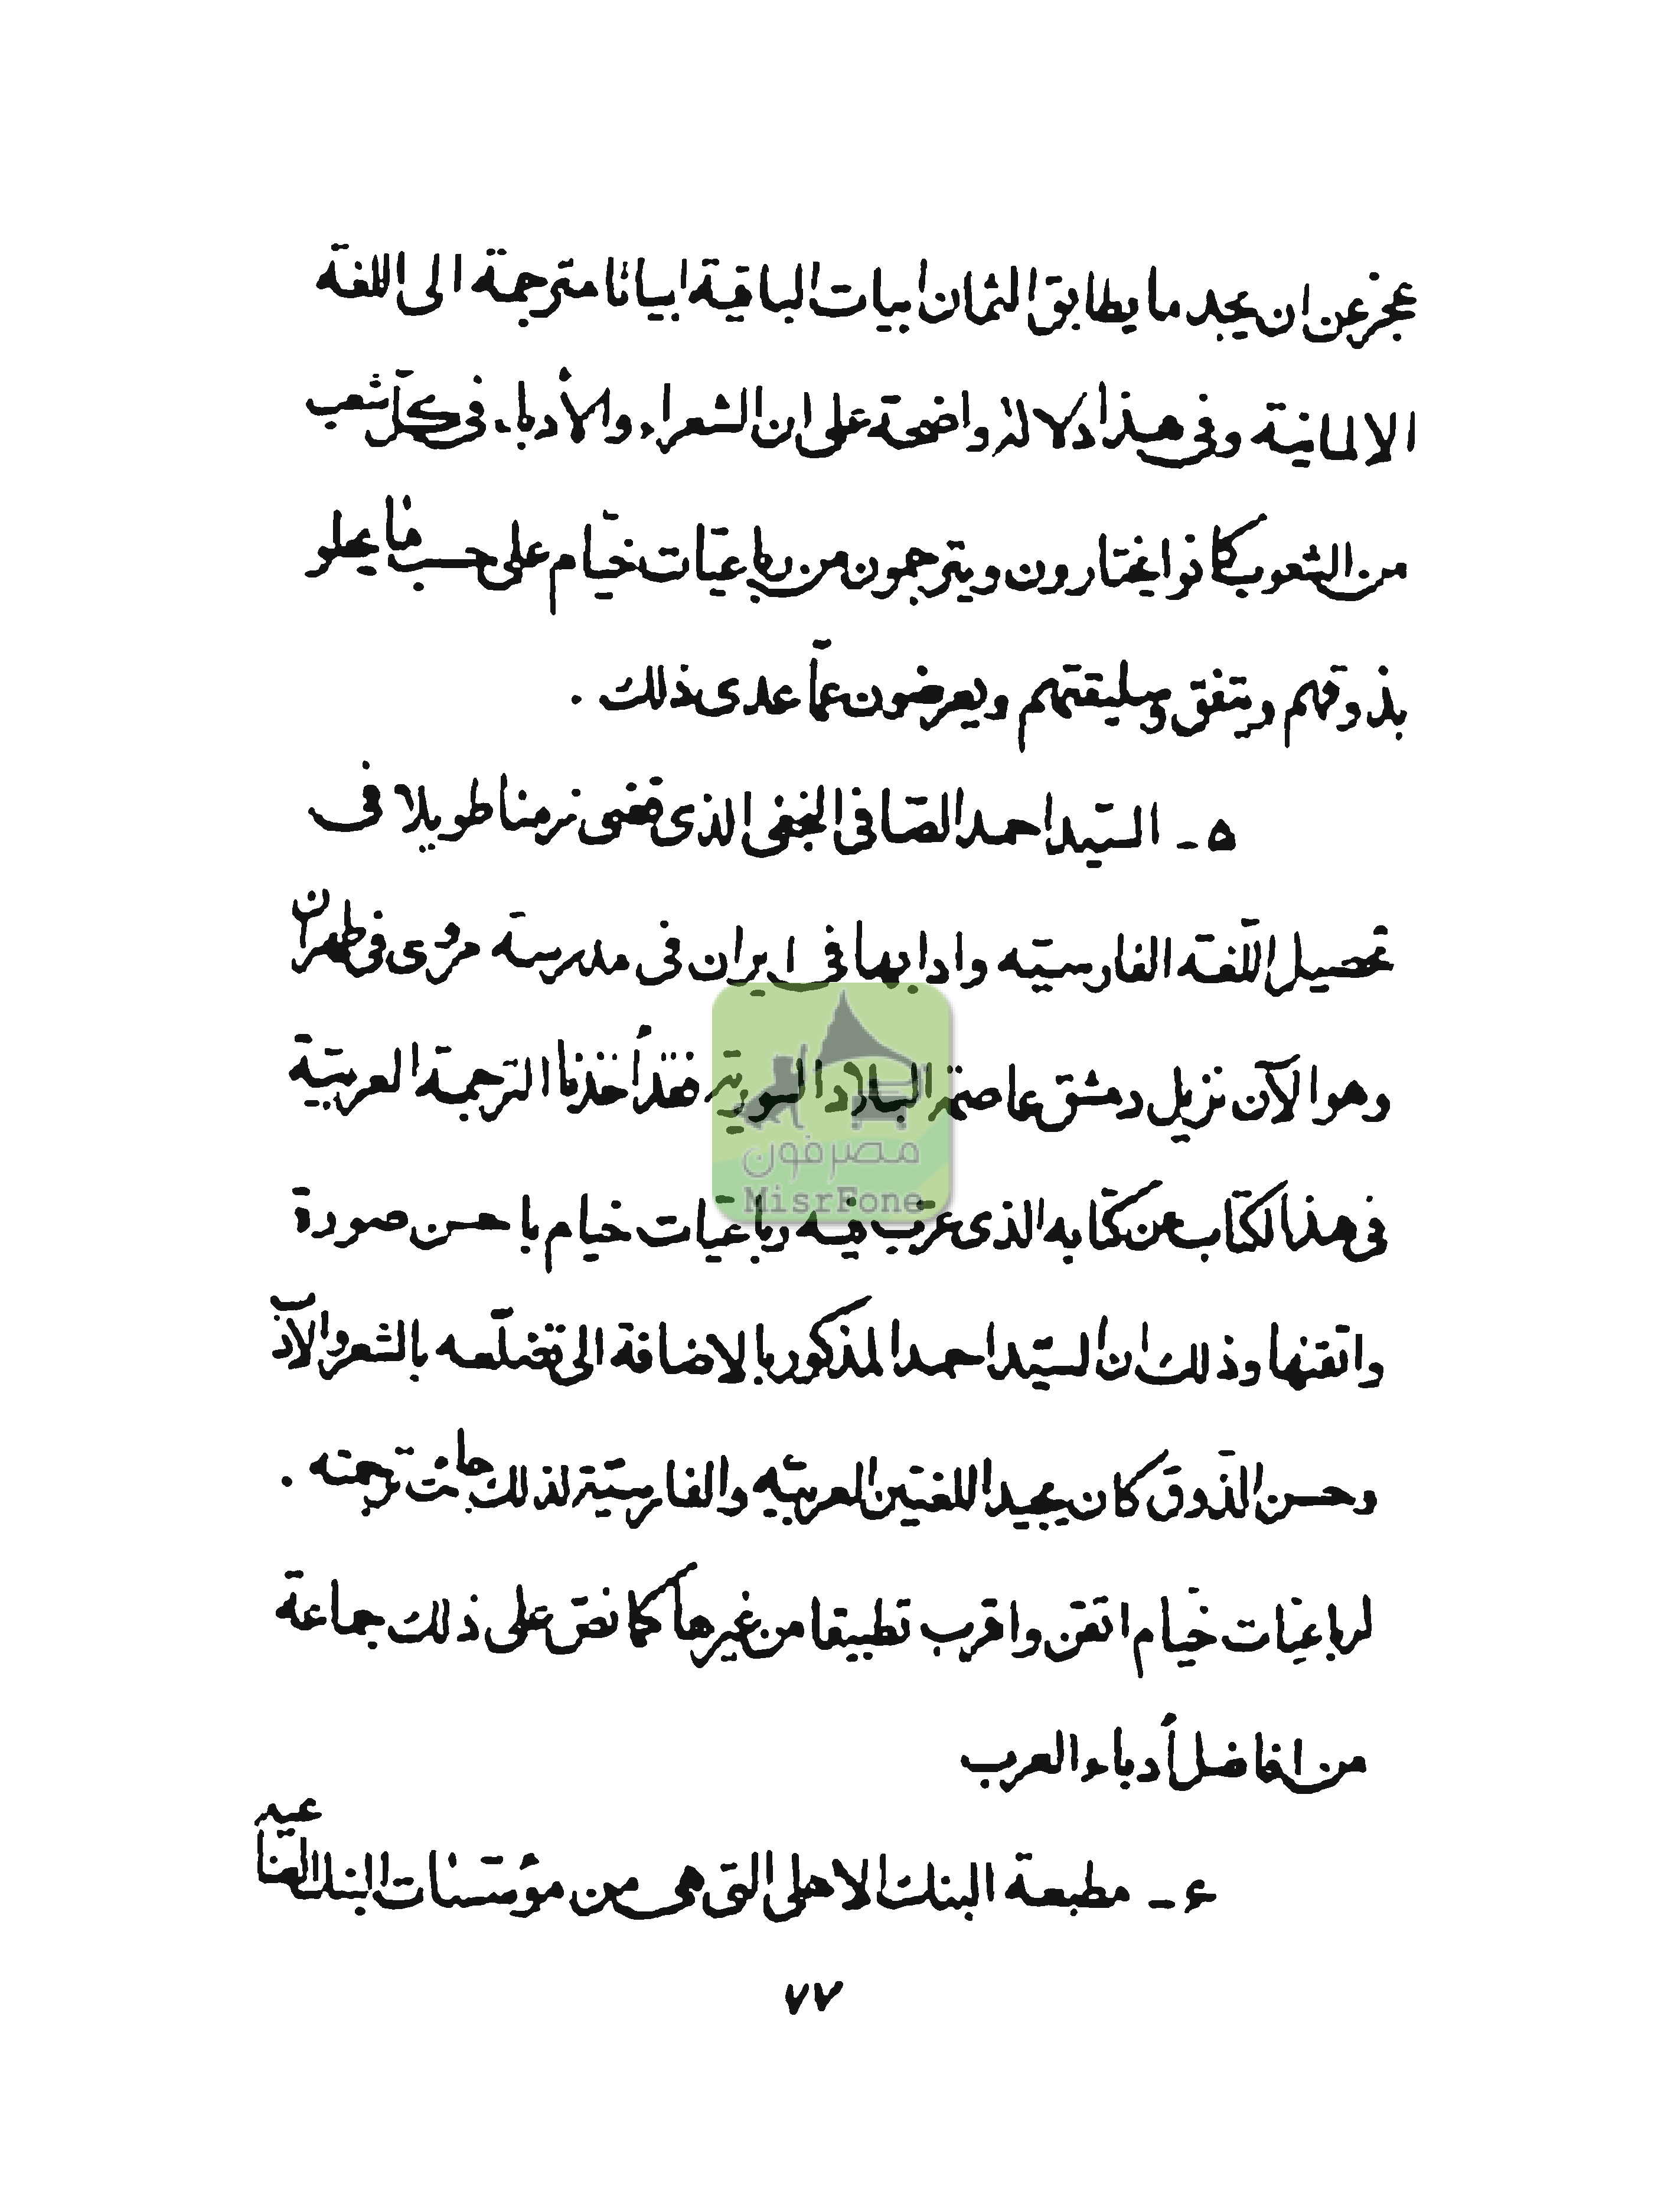 عجز عن ان يجد ما يطابق الثمان ابيات الباقية ابياتا مترجمة الى اللغة
الالمانية وفى هذا دلالة واضحة على ان الشعراء والأدباء فى كلّ شعب
من الشعوب كانوا يختارون ويترجمون من رباعيّات خيّام على حسب ما يحلو
بذوقهم ويتفق وسليقتهم ويعرضون عمّا عدى ذلك .
۵ - السّيد احمد الصّافى النجفى الذى قضى زمنا طويلا فى
تحصيل اللّغة الفارسيّه وادابها فى ايران فى مدرسة مروى فى طهران
وهو الآن نزيل دمشق عاصمة البلاد السورية فقد أخذنا الترجمة العربيّة
فى هذا الكتاب عن كتابه الذى عرّب فيه رباعيّات خيام باحسن صورة
واتقنها وذلك ان السيّد احمد المذكور بالاضافة الى تضلّعه بالشعر والادب
وحسن الذّوق كان يجيد اللغتين العربيّه والفارسيّة لذلك جائت ترجمته .
لرباعيّات خيّام اتقن واقرب تطبيقا من غيرها كما نصّ على ذلك جماعة
من افاضل أدباء العرب
۶ - مطبعة البنك الاهلى التى هى من مؤسّسات البنك الصّناعيه
مصرفون
MisrFone
٧٧